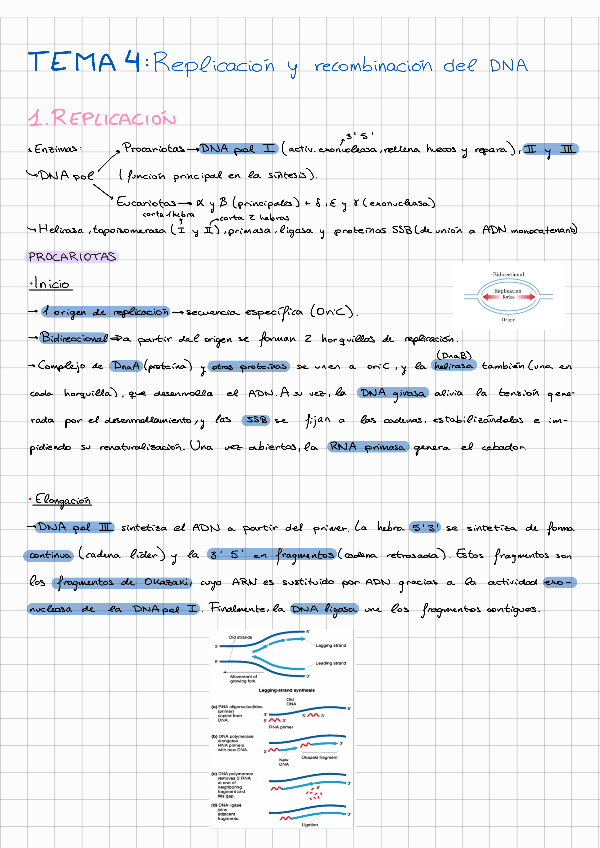 TEMA 4: Replicación y recombinación del DNA
1. REPLICACIÓN
Enzimas:
3' 5'
Procariotas → DNA pol I (activ. exonucleasa, rellena huecos y repara), II y III
DNA pol
(función principal en la síntesis).
Eucariotas → α y β (principales) + δ, ε y γ (exonucleasa)
corta 1 hebra
corta 2 hebras
Helicasa, topoisomerasa (I y II), primasa, ligasa y proteínas SSB (de unión a ADN monocatenario)
PROCARIOTAS
· Inicio
→ 1 origen de replicación → secuencia específica (OriC).
→ Bidireccional → a partir del origen se forman 2 horquillas de replicación.
(DnaB)
→ Complejo de DnaA (proteína) y otras proteínas se unen a oriC, y la helicasa también (una en
cada horquilla), que desenrolla el ADN. A su vez, la DNA girasa alivia la tensión gene-
rada por el desenrollamiento, y las SSB se fijan a las cadenas, estabilizándolas e im-
pidiendo su renaturalización. Una vez abiertas, la RNA primasa genera el cebador.
Bidirectional
Replication
forks
Origin
· Elongación
→ DNA pol III sintetiza el ADN a partir del primer. La hebra 5' 3' se sintetiza de forma
continua (cadena líder) y la 3' 5' en fragmentos (cadena retrasada). Estos fragmentos son
los fragmentos de Okazaki, cuyo ARN es sustituido por ADN gracias a la actividad exo-
nucleasa de la DNA pol I. Finalmente, la DNA ligasa une los fragmentos contiguos.
Old strands
Lagging strand
Leading strand
Movement of
growing fork
Lagging-strand synthesis
(a) RNA oligonucleotides
(primer)
copied from
DNA.
Old
DNA
RNA primer
(b) DNA polymerase
elongates
RNA primers
with new DNA.
New
DNA
Okazaki fragment
(c) DNA polymerase
removes 5' RNA
at end of
neighboring
fragment and
fills gap.
(d) DNA ligase
joins
adjacent
fragments.
Ligation